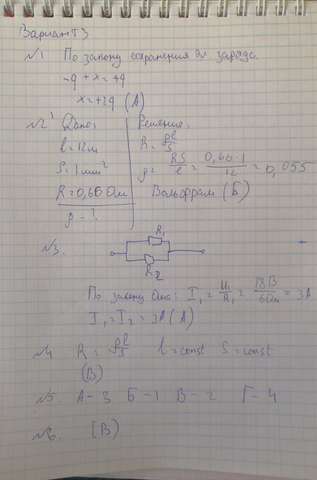 Вариант 3
№1 По закону сохранения эл заряда
-q + x = +q
x = +2q (А)
№2 Дано: Решение:
l = 12м R = ρl/S
S = 1 мм² ρ = RS/l = 0,66·1/12 = 0,055
R = 0,66 Ом Вольфрам (Б)
ρ - ?
№3. R₁
R₂
По закону Ома: I₁ = U₁/R₁ = 18В/6Ом = 3А
I₁ = I₂ = 3А (А)
№4 R = ρl/S l = const S = const
(В)
№5. А - 3 Б - 1 В - 2 Г - 4
№6. (В)